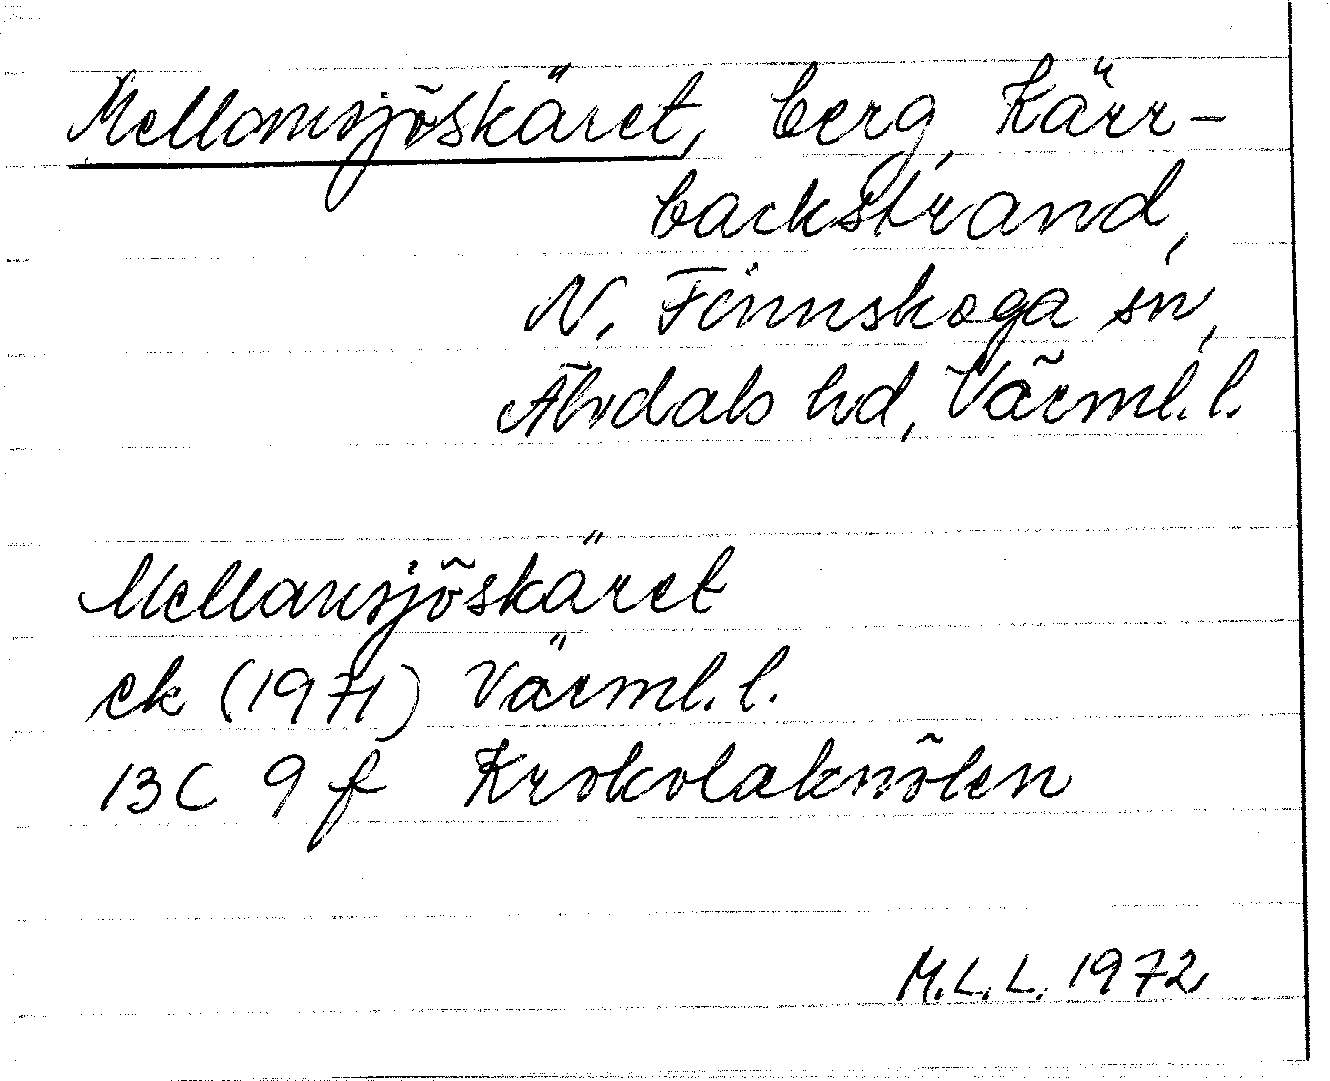 Mellansjöskäret, berg, Kärr-
backstrand,
N. Finnskoga sn,
Älvdals hd, Värml. l.
Mellansjöskäret
ek (1971) Värml. l.
13C 9f Krokolaknölen
M.L.L. 1972